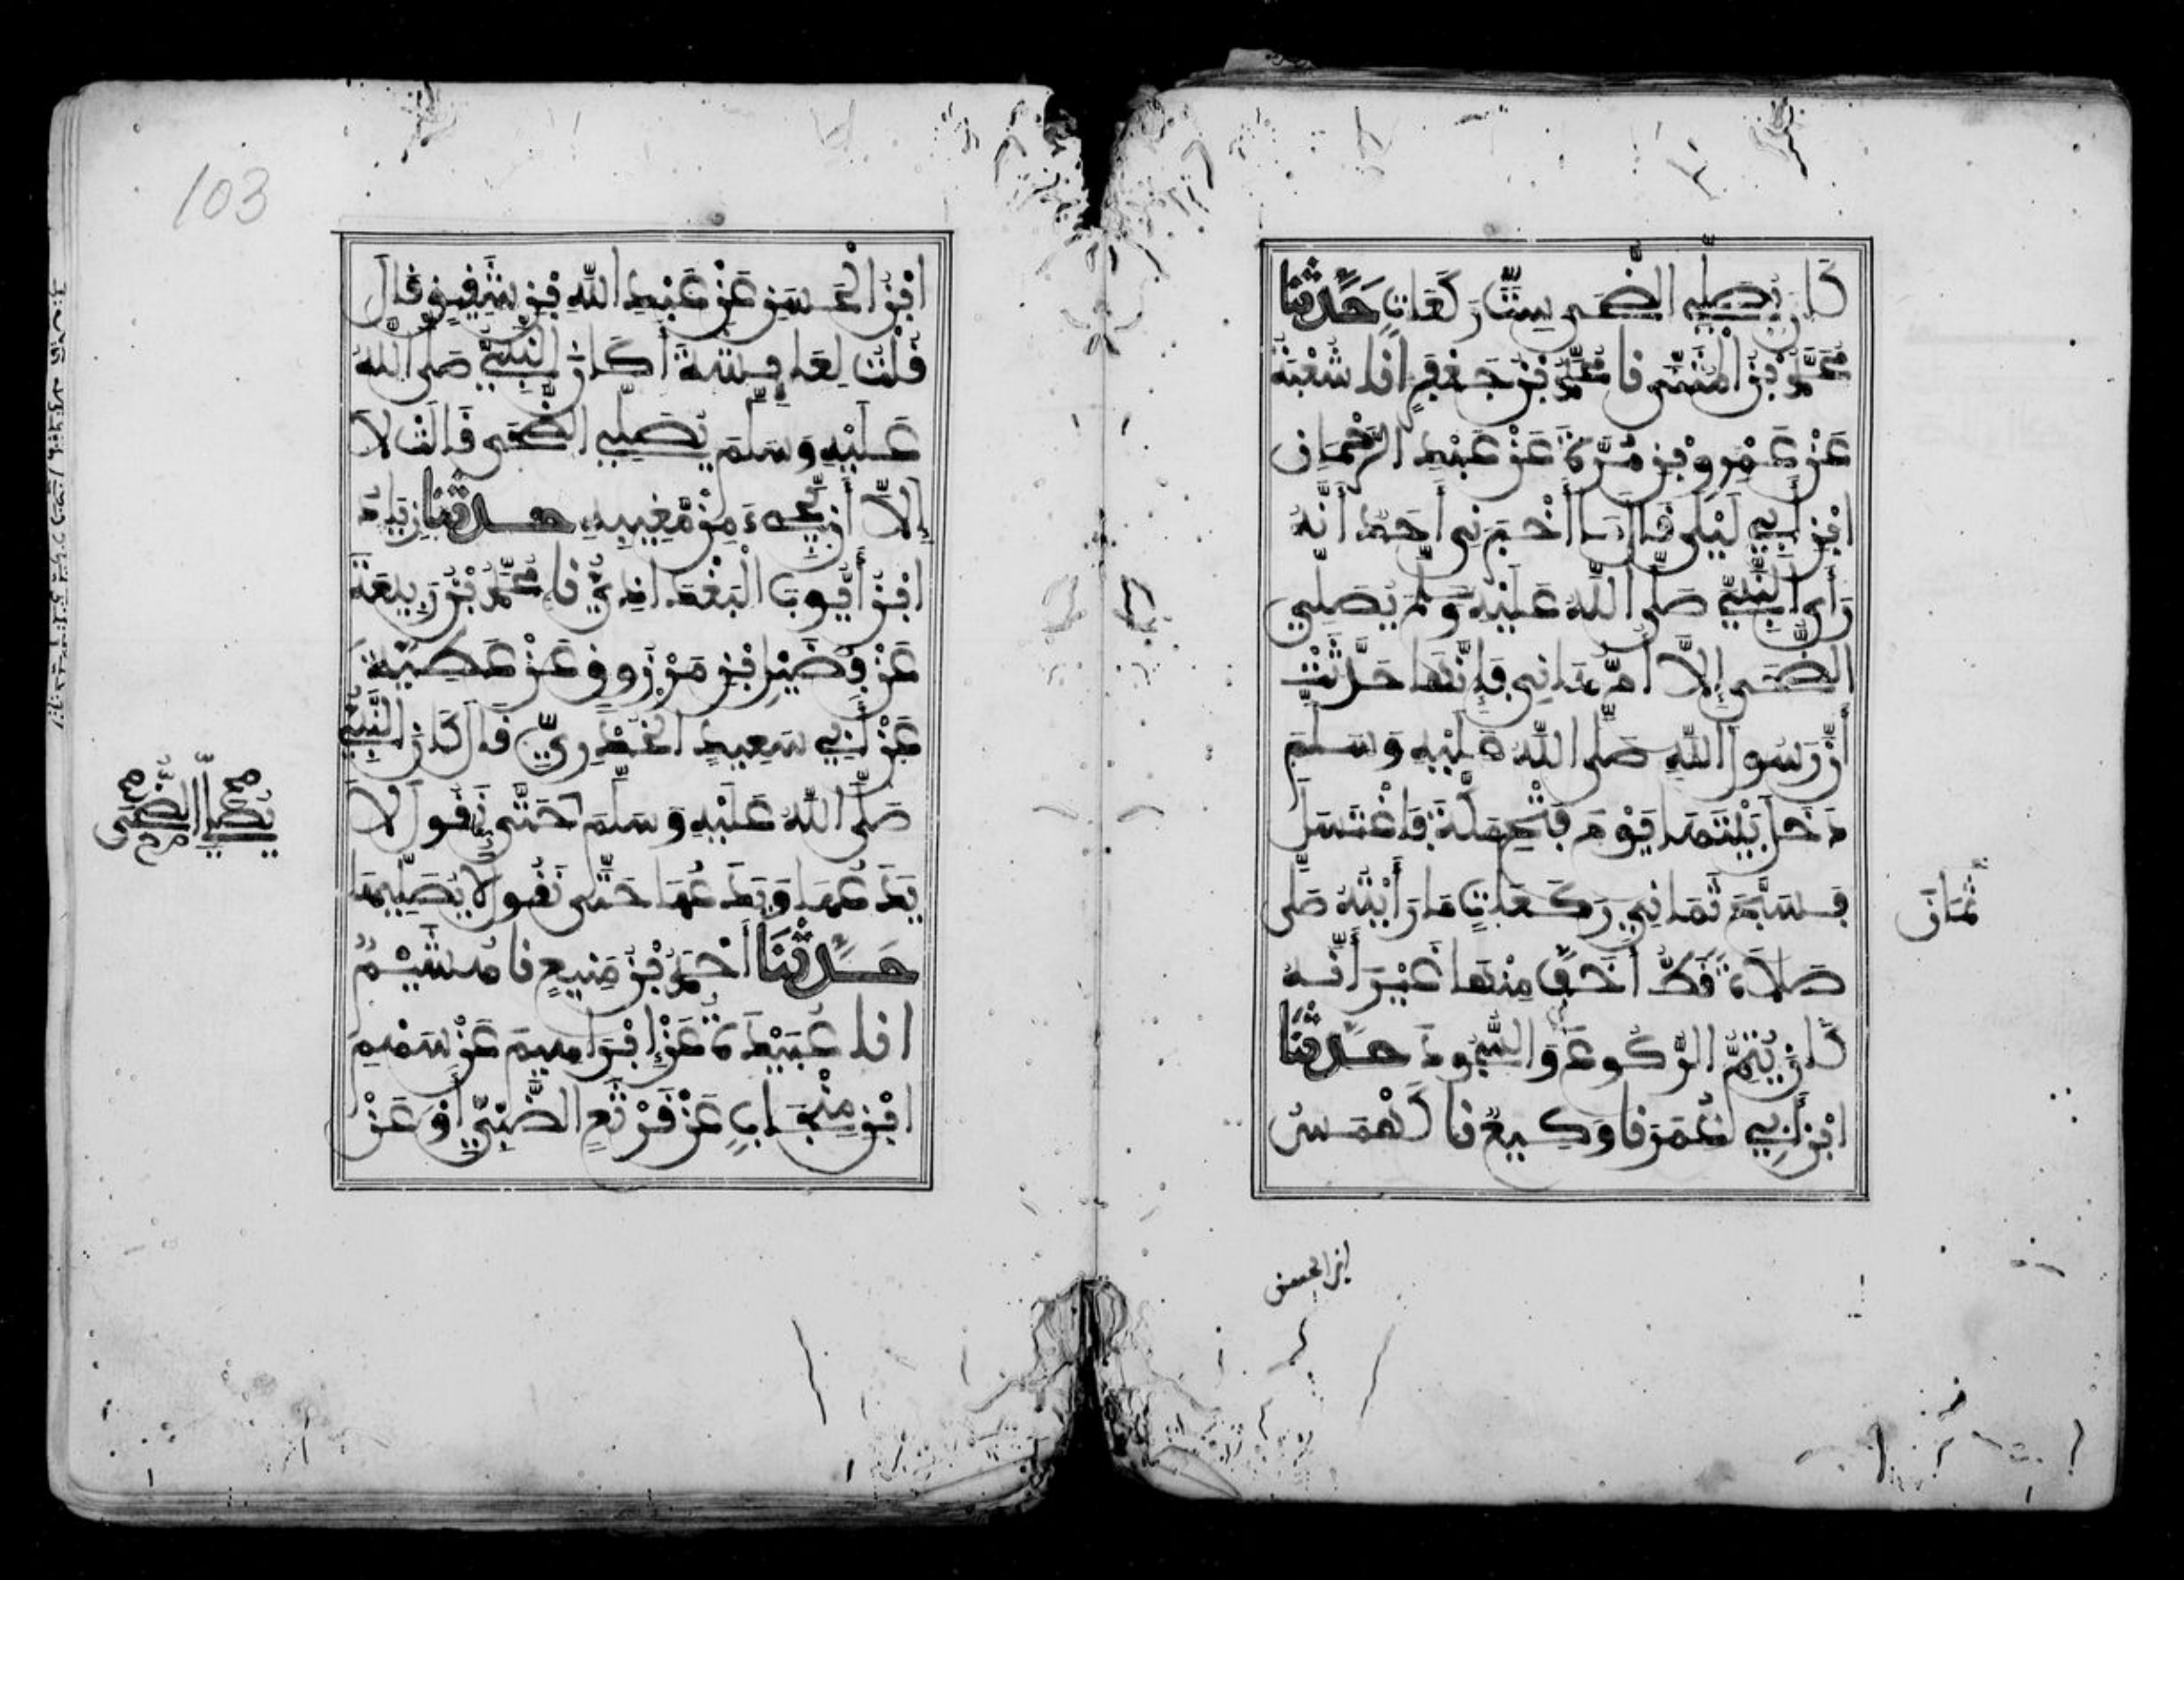 كَانَ يُصَلِّي الضُّحَى سِتَّ رَكَعَاتٍ حَدَّثَنَا
مُحَمَّدُ بْنُ الْمُثَنَّى نا مُحَمَّدُ بْنُ جَعْفَرٍ انا شُعْبَةُ
عَنْ عَمْرِو بْنِ مُرَّةَ عَنْ عَبْدِ الرَّحْمَانِ
ابْنِ أَبِي لَيْلَى قَالَ مَا أَخْبَرَنِي أَحَدٌ أَنَّهُ
رَأَى النَّبِيَّ صَلَّى اللَّهُ عَلَيْهِ وَسَلَّمَ يُصَلِّي
الضُّحَى إِلَّا أُمُّ هَانِي فَإِنَّهَا حَدَّثَتْ
أَنَّ رَسُولَ اللَّهِ صَلَّى اللَّهُ عَلَيْهِ وَسَلَّمَ
دَخَلَ بَيْتَهَا يَوْمَ فَتْحِ مَكَّةَ فَاغْتَسَلَ
فَسَبَّحَ ثَمَانِي رَكَعَاتٍ مَا رَأَيْتُهُ صَلَّى
صَلَاةً قَطُّ أَخَفَّ مِنْهَا غَيْرَ أَنَّهُ
كَانَ يُتِمُّ الرُّكُوعَ وَالسُّجُودَ حَدَّثَنَا
ابْنُ أَبِي عُمَرَ نا وَكِيعٌ نا كَهْمَسُ
ثَمَانَ
ابن الحسن
103
ابْنُ الْحَسَنِ عَنْ عَبْدِ اللَّهِ بْنِ شَقِيقٍ قَالَ
قُلْتُ لِعَائِشَةَ أَكَانَ النَّبِيُّ صَلَّى اللَّهُ
عَلَيْهِ وَسَلَّمَ يُصَلِّي الضُّحَى قَالَتْ لَا
إِلَّا أَنْ يَجِيءَ مِنْ مَغِيبِهِ حَدَّثَنَا زِيَادُ
ابْنُ أَيُّوبَ الْبَغْدَاذِيُّ نا مُحَمَّدُ بْنُ رَبِيعَةَ
عَنْ فُضَيْلِ بْنِ مَرْزُوقٍ عَنْ عَطِيَّةَ
عَنْ أَبِي سَعِيدٍ الْخُدْرِيِّ قَالَ كَانَ النَّبِيُّ
صَلَّى اللَّهُ عَلَيْهِ وَسَلَّمَ حَتَّى نَقُولَ لَا
يَدَعُهَا وَيَدَعُهَا حَتَّى نَقُولَ لَا يُصَلِّيهَا
حَدَّثَنَا أَحْمَدُ بْنُ مَنِيعٍ نا هُشَيْمٌ
انا عُبَيْدَةُ عَنْ إِبْرَاهِيمَ عَنْ سَهْمِ
ابْنِ مِنْجَابٍ عَنْ قَرْثَعٍ الضَّبِّيِّ أَوْ عَنْ
يُصَلِّي الضُّحَى